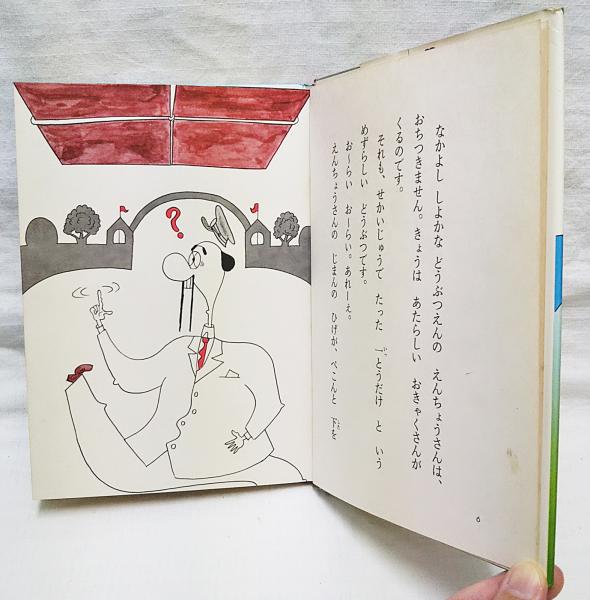 なかよし しよかな どうぶつえんの えんちょうさんは、
おちつきません。きょうは あたらしい おきゃくさんが
くるのです。
それも、せかいじゅうで たった 一とうだけ と いう
めずらしい どうぶつです。
お〜らい お〜らい。あれーえ。
えんちょうさんの じまんの ひげが、ぺこんと 下を
6
?